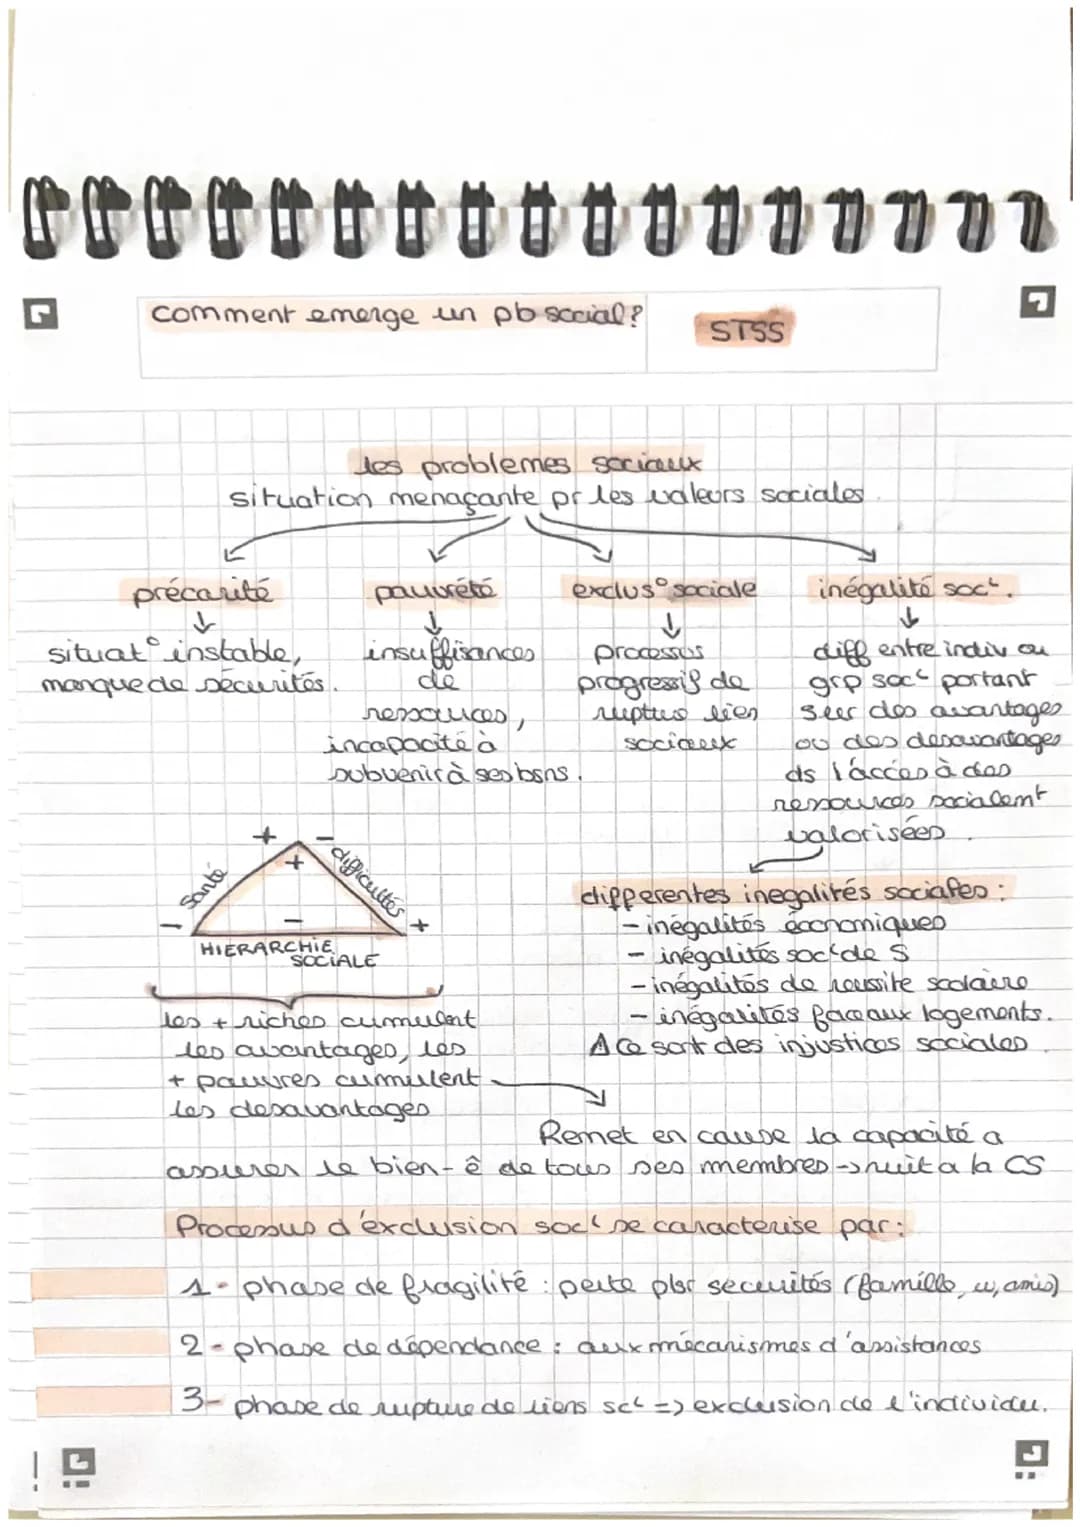 comment emerge un pb social?
STSS
les problemes sociaux
situation menaçante pr les valeurs sociales.
précarité
situat° instable,
manque de sécurités.
pauvrété
insuffisances
de
ressources,
incapacité à
subvenir à ses bsns.
exclus° sociale
processus
progressif de
rupture lien
sociaux
inégalité socᵗ.
diff entre indiv ou
grp socᵗ portant
sur des avantages
ou des desavantages
ds l'accès à des
ressources socialemt
valorisées.
+ -
santé
+
difficultés
- - +
HIERARCHIE
SOCIALE
les + riches cumulent
les avantages, les
+ pauvres cumulent
les desavantages
differentes inegalités sociales :
- inégalités économiques
- inégalités socᵗ de S
- inégalités de reussite scolaire
- inégalités face aux logements.
⚠ ce sont des injustices sociales.
Remet en cause la capacité a
assurer le bien-ê de tous ses membres → nuit a la CS
Processus d'exclusion socᵗ se caracterise par:
1- phase de fragilité : perte plsr securités (famille, w, amis)
2- phase de dépendance : aux mécanismes d'assistances
3- phase de rupture de liens scᵗ => exclusion de l'individu.